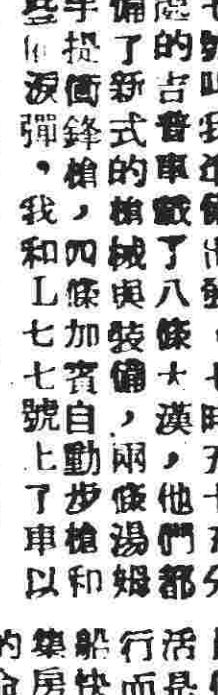 處的吉普車載了八條大漢，他們都
備了新式的槍械與裝備，兩條湯姆
手提衝鋒槍，四條加賓自動步槍和
些催淚彈，我和L七七號上了車以
活是
行而
船快
集房
的